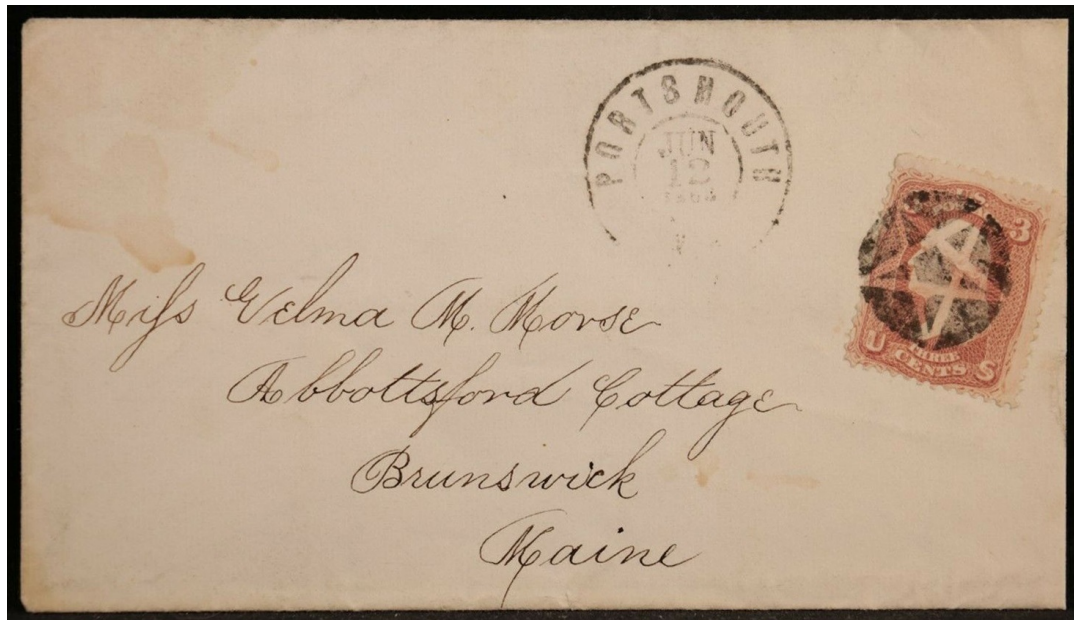 PORTSMOUTH
JUN
12
3
U THREE CENTS S
Miſs Velma M. Morse
Abbottsford Cottage
Brunswick
Maine